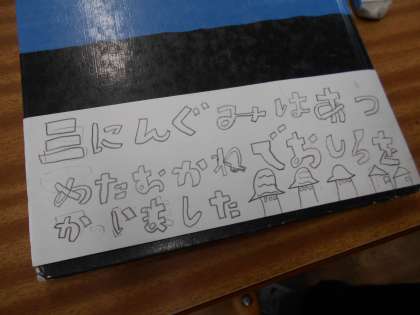 三にんぐみはあつ
めたおかねでおしろを
かいました